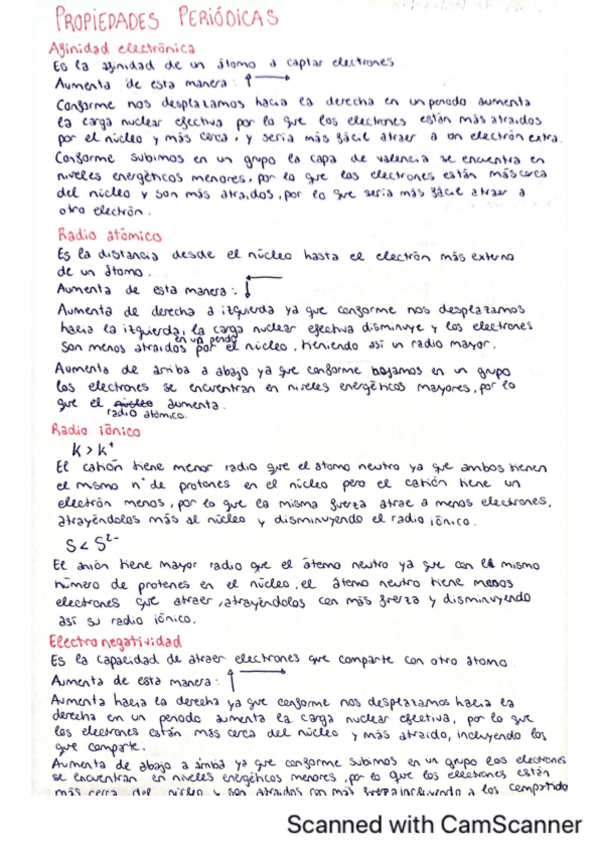 PROPIEDADES PERIÓDICAS
Afinidad electrónica
Es la afinidad de un átomo a captar electrones
Aumenta de esta manera: ↑→
Conforme nos desplazamos hacia la derecha en un periodo aumenta
la carga nuclear efectiva por lo que los electrones están más atraidos
por el núcleo y más cerca, y sería más fácil atraer a un electrón extra.
Conforme subimos en un grupo la capa de valencia se encuentra en
niveles energéticos menores, por lo que los electrones están más cerca
del núcleo y son más atraidos, por lo que seria más fácil atraer a
otro electrón.
Radio atómico
Es la distancia desde el núcleo hasta el electrón más externo
de un átomo.
Aumenta de esta manera: ↓←
Aumenta de derecha a izquierda ya que conforme nos desplazamos
hacia la izquierda, la carga nuclear efectiva disminuye y los electrones
en un periodo
son menos atraidos por el núcleo, teniendo así un radio mayor.
Aumenta de arriba a abajo ya que conforme bajamos en un grupo
los electrones se encuentran en niveles energéticos mayores, por lo
que el núcleo aumenta.
radio atómico.
Radio iónico
K > K⁺
El catión tiene menor radio que el atomo neutro ya que ambos tienen
el mismo nº de protones en el núcleo pero el catión tiene un
electrón menos, por lo que la misma fuerza atrae a menos electrones,
atrayéndolos más al núcleo y disminuyendo el radio iónico.
S < S²⁻
El anión tiene mayor radio que el átomo neutro ya que con el mismo
número de protones en el núcleo, el átomo neutro tiene menos
electrones que atraer, atrayéndolos con más fuerza y disminuyendo
así su radio iónico.
Electronegatividad
Es la capacidad de atraer electrones que comparte con otro átomo
Aumenta de esta manera: ↑→
Aumenta hacia la derecha ya que conforme nos desplazamos hacia la
derecha en un periodo aumenta la carga nuclear efectiva, por lo que
los electrones están más cerca del núcleo y más atraido, incluyendo los
que comparte.
Aumenta de abajo a arriba ya que conforme subimos en un grupo los electrones
se encuentran en niveles energéticos menores, por lo que los electrones están
más cerca del núcleo y son atraidos con más fuerza incluyendo a los compartido
Scanned with CamScanner